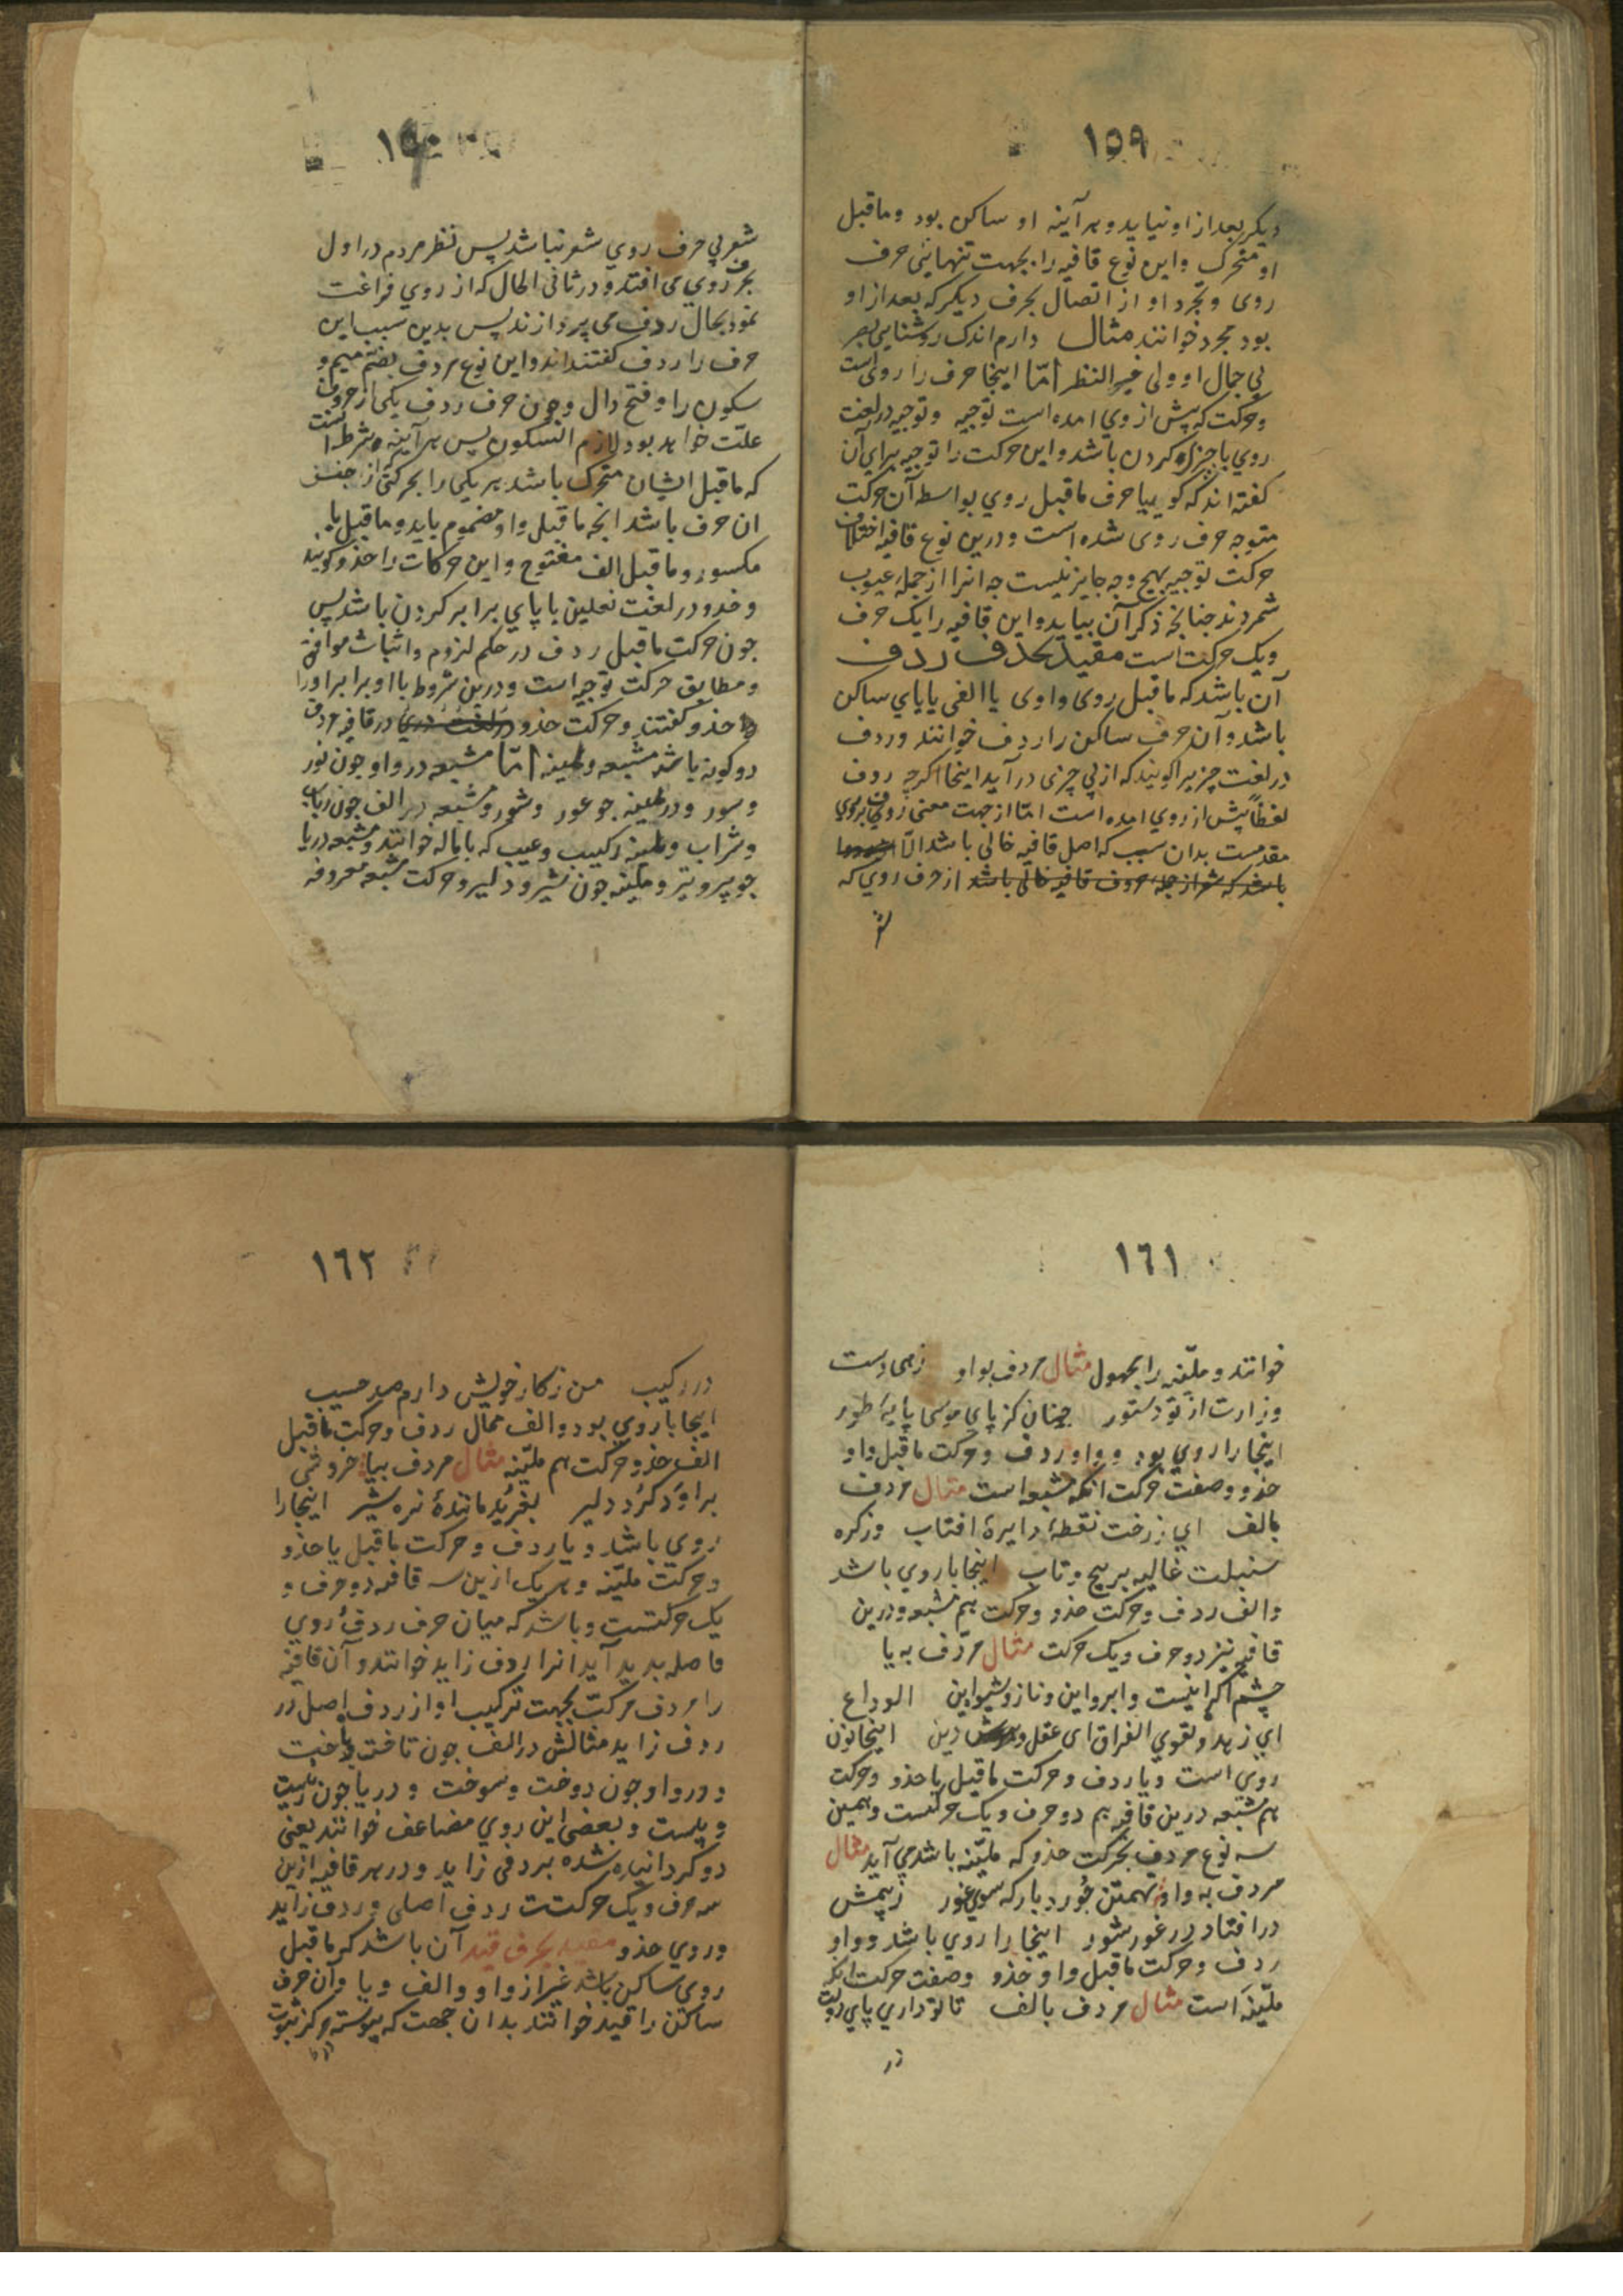 ١٥٩
دیکر بعد از او نیاید و هر آینه او ساکن بود و ماقبل
او متحرک و این نوع قافیه را بجهت تنهایئی حرف
روی و تجرد او از اتصال بحرف دیکر که بعد از او
بود مجرد خوانند مثال دارم اندک روشنایی بصر
بی جمال او ولی فیه النظر امّا اینجا حرف را روی است
و حرکت که پیش از وی امده است توجیه و توجیه در لغت
روي با چیزی کردن باشد و این حرکت را توجیه برای آن
کفته اند که کوییا حرف ماقبل روی بواسطه آن حرکت
متوجه حرف روی شده است و درین نوع قافیه اختلاف
حرکت توجیه بهیچ وجه جایز نیست چه انرا از جمله عیوب
شمردند چنانچه ذکر آن بیاید و این قافیه را یک حرف
ویک حرکت است مقید بحذف ردف
آن باشد که ماقبل روی واوی یا الفی یا یای ساکن
باشد و آن حرف ساکن را ردف خوانند و ردف
در لغت چیزیرا کویند که از پی چیزی در آید اینجا اکرچه ردف
لفظاً پیش از روي امده است امّا از جهت معنی روی بر ردف
مقدمست بدان سبب که اصل قافیه خالی باشد الّا
باشد که شعر از جمله حروف قافیه خالی باشد از حرف روي که
شعر
١٦٠
شعر بی حرف روي شعر نباشد پس نظر مردم در اول
بحرف روي می افتد و در ثانی الحال که از روي فراغت
نمود بحال ردف می پردازند پس بدین سبب این
حرف را ردف کفتند اند و این نوع مردف بضمّ میم و
سکون را و فتح دال و چون حرف ردف یکی از حروف
علّت خواهد بود لازم السکون پس هر آینه شرط است
که ماقبل ایشان متحرک باشد هر یکی را بحرکتی از جنس
ان حرف باشد انچه ماقبل واو مضموم باید و ماقبل یا
مکسور و ماقبل الف مفتوح و این حرکات را حذو کویند
و حذو در لغت نعلین با پای برابر کردن باشد پس
چون حرکت ماقبل ردف در حکم لزوم و اثبات موافق
و مطابق حرکت توجیه است و درین شروط با او برابر اورا
حذو کفتند و حرکت حذو در قافیه مردف
دو کونه باشد مشبعه و ملینه امّا مشبعه در واو چون نور
و سور و در ملینه چو عور و شور و مشبعه در الف چون رباب
و شراب و ملینه رکیب و عیب که باماله خوانند و مشبعه در یا
چو پیر و تیر و ملینه چون شیر و دلیر و حرکت مشبعه معروفه
١٦١
خوانند و ملیّنه را مجهول مثال مردف بواو زهی دست
وزارت از تو دستور چنان کز پای موسی پایهٔ طور
اینجا را روي بود و واو ردف و حرکت ماقبل واو
حذو و صفت حرکت انکه مشبعه است مثال مردف
بالف اي زرخت نقطهٔ دایرهٔ افتاب وز کره
سنبلت غالیه بر پیچ و تاب اینجا با روي باشد
و الف ردف و حرکت حذو و حرکت هم مشبعه و درین
قافیه نیز دو حرف و یک حرکت مثال مردف به یا
چشم اکر اینست و ابرو این و ناز و شیوه این الوداع
اي زهد و تقوي الفراق ای عقل و دین اینجا نون
روي است و یا ردف و حرکت ماقبل یا حذو و حرکت
هم مشبعه درین قافیه هم دو حرف و یک حرکتست و همین
سه نوع مردف بحرکت حذو که ملیّنه باشد می آید مثال
مردف به واو تهمتن خورد بار که سوي غور زبیمش
در افتاد در غور شور اینجا را روي باشد و واو
ردف و حرکت ماقبل واو حذو و صفت حرکت انکه
ملیّنه است مثال مردف بالف تا تو داري پای دولت
در
١٦٢
در رکیب من ز کار خویش دارم صد حسیب
اینجا با روي بود و الف ممال ردف و حرکت ماقبل
الف حذو حرکت هم ملیّنه مثال مردف بیا خروشی
براورد کرد دلیر بغرید مانندهٔ نره شیر اینجا را
روي باشد و یا ردف و حرکت ماقبل یا حذو
و حرکت ملیّنه و هر یک ازین سه قافیه دو حرف و
یک حرکتست و باشد که میان حرف ردف و روي
فاصله پدید آید انرا ردف زاید خوانند و آن قافیه
را مردف مرکّب بجهت ترکیب او از ردف اصل در
ردف زاید مثالش در الف چون تاخت و باخت
و در واو چون دوخت و سوخت و در یا چون زیست
و بیست و بعضی این روي مضاعف خوانند یعنی
دو کردانیده شده بردفی زاید و در هر قافیه ازین
سه حرف و یک حرکتست ردف اصلی و ردف زاید
و روي حذو مقید بحرف قید آن باشد که ماقبل
روی ساکن باشد غیر از واو و الف و یا و آن حرف
ساکن را قید خوانند بدان جهت که پیوسته